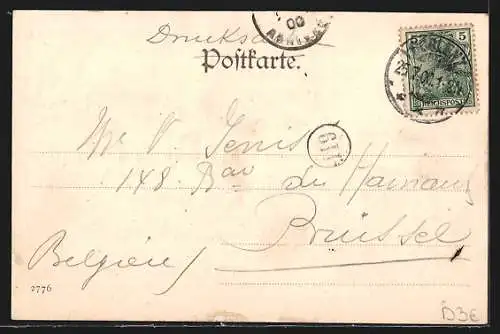 Drucksache
Postkarte.
00
5
REICHSPOST
Mr V. Jenis
119
148 Bar du Hainaut
Brüssel
Belgien
2776
D3E